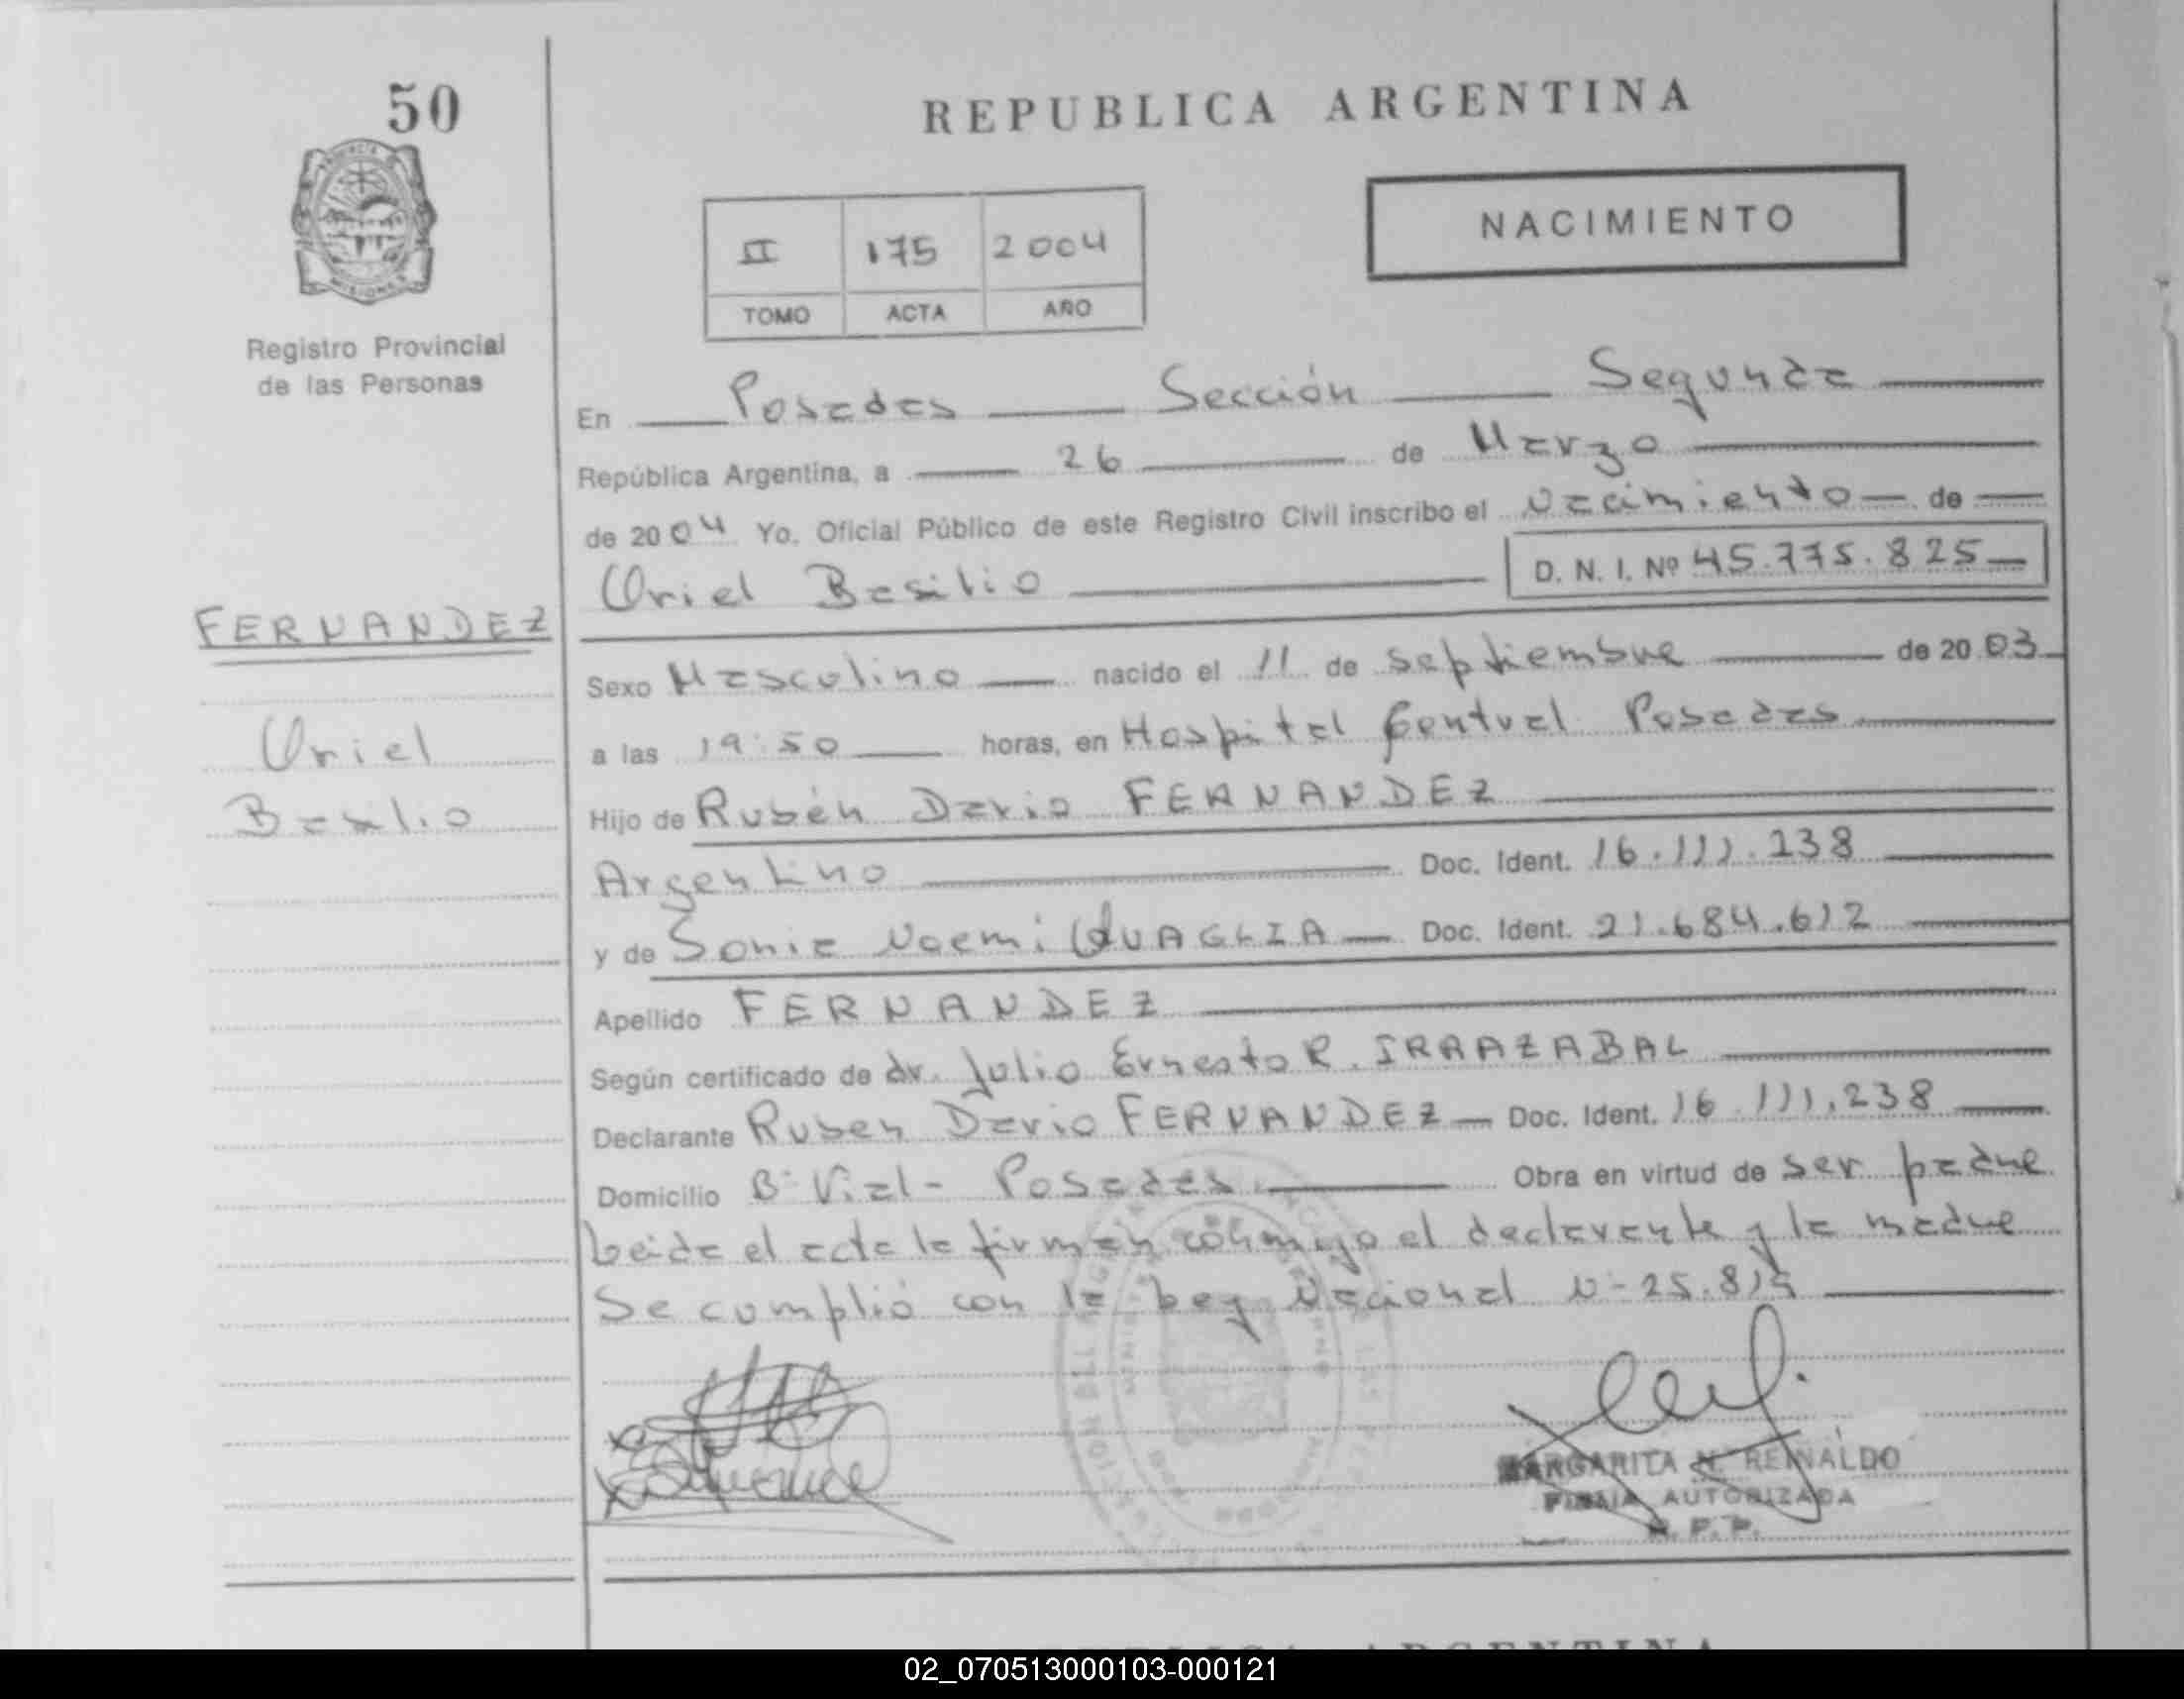 50
REPUBLICA ARGENTINA
NACIMIENTO
II 175 2004
TOMO ACTA AÑO
MISIONES
Registro Provincial
de las Personas
En Posadas Sección Segunda
República Argentina, a 26 de Marzo
de 2004 Yo, Oficial Público de este Registro Civil inscribo el Nacimiento de
Uriel Basilio D. N. I. Nº 45.775.825
FERNANDEZ
Uriel
Basilio
Sexo Masculino nacido el 11 de septiembre de 2003
a las 19:50 horas, en Hospital Central Posadas
Hijo de Rubén Dario FERNANDEZ
Argentino Doc. Ident. 16.111.238
y de Sonia Noemi QUAGLIA Doc. Ident. 21.684.612
Apellido FERNANDEZ
Según certificado de dr. Julio Ernesto R. IRRAZABAL
Declarante Ruben Dario FERNANDEZ Doc. Ident. 16.111.238
Domicilio Bº Vial - Posadas Obra en virtud de ser padre
Leida el acta la firman conmigo el declarante y la madre
Se cumplió con la Ley Nacional Nº 25.819
MARGARITA N. REINALDO
FIRMA AUTORIZADA
R. P. P.
REPUBLICA ARGENTINA
02_070513000103-000121